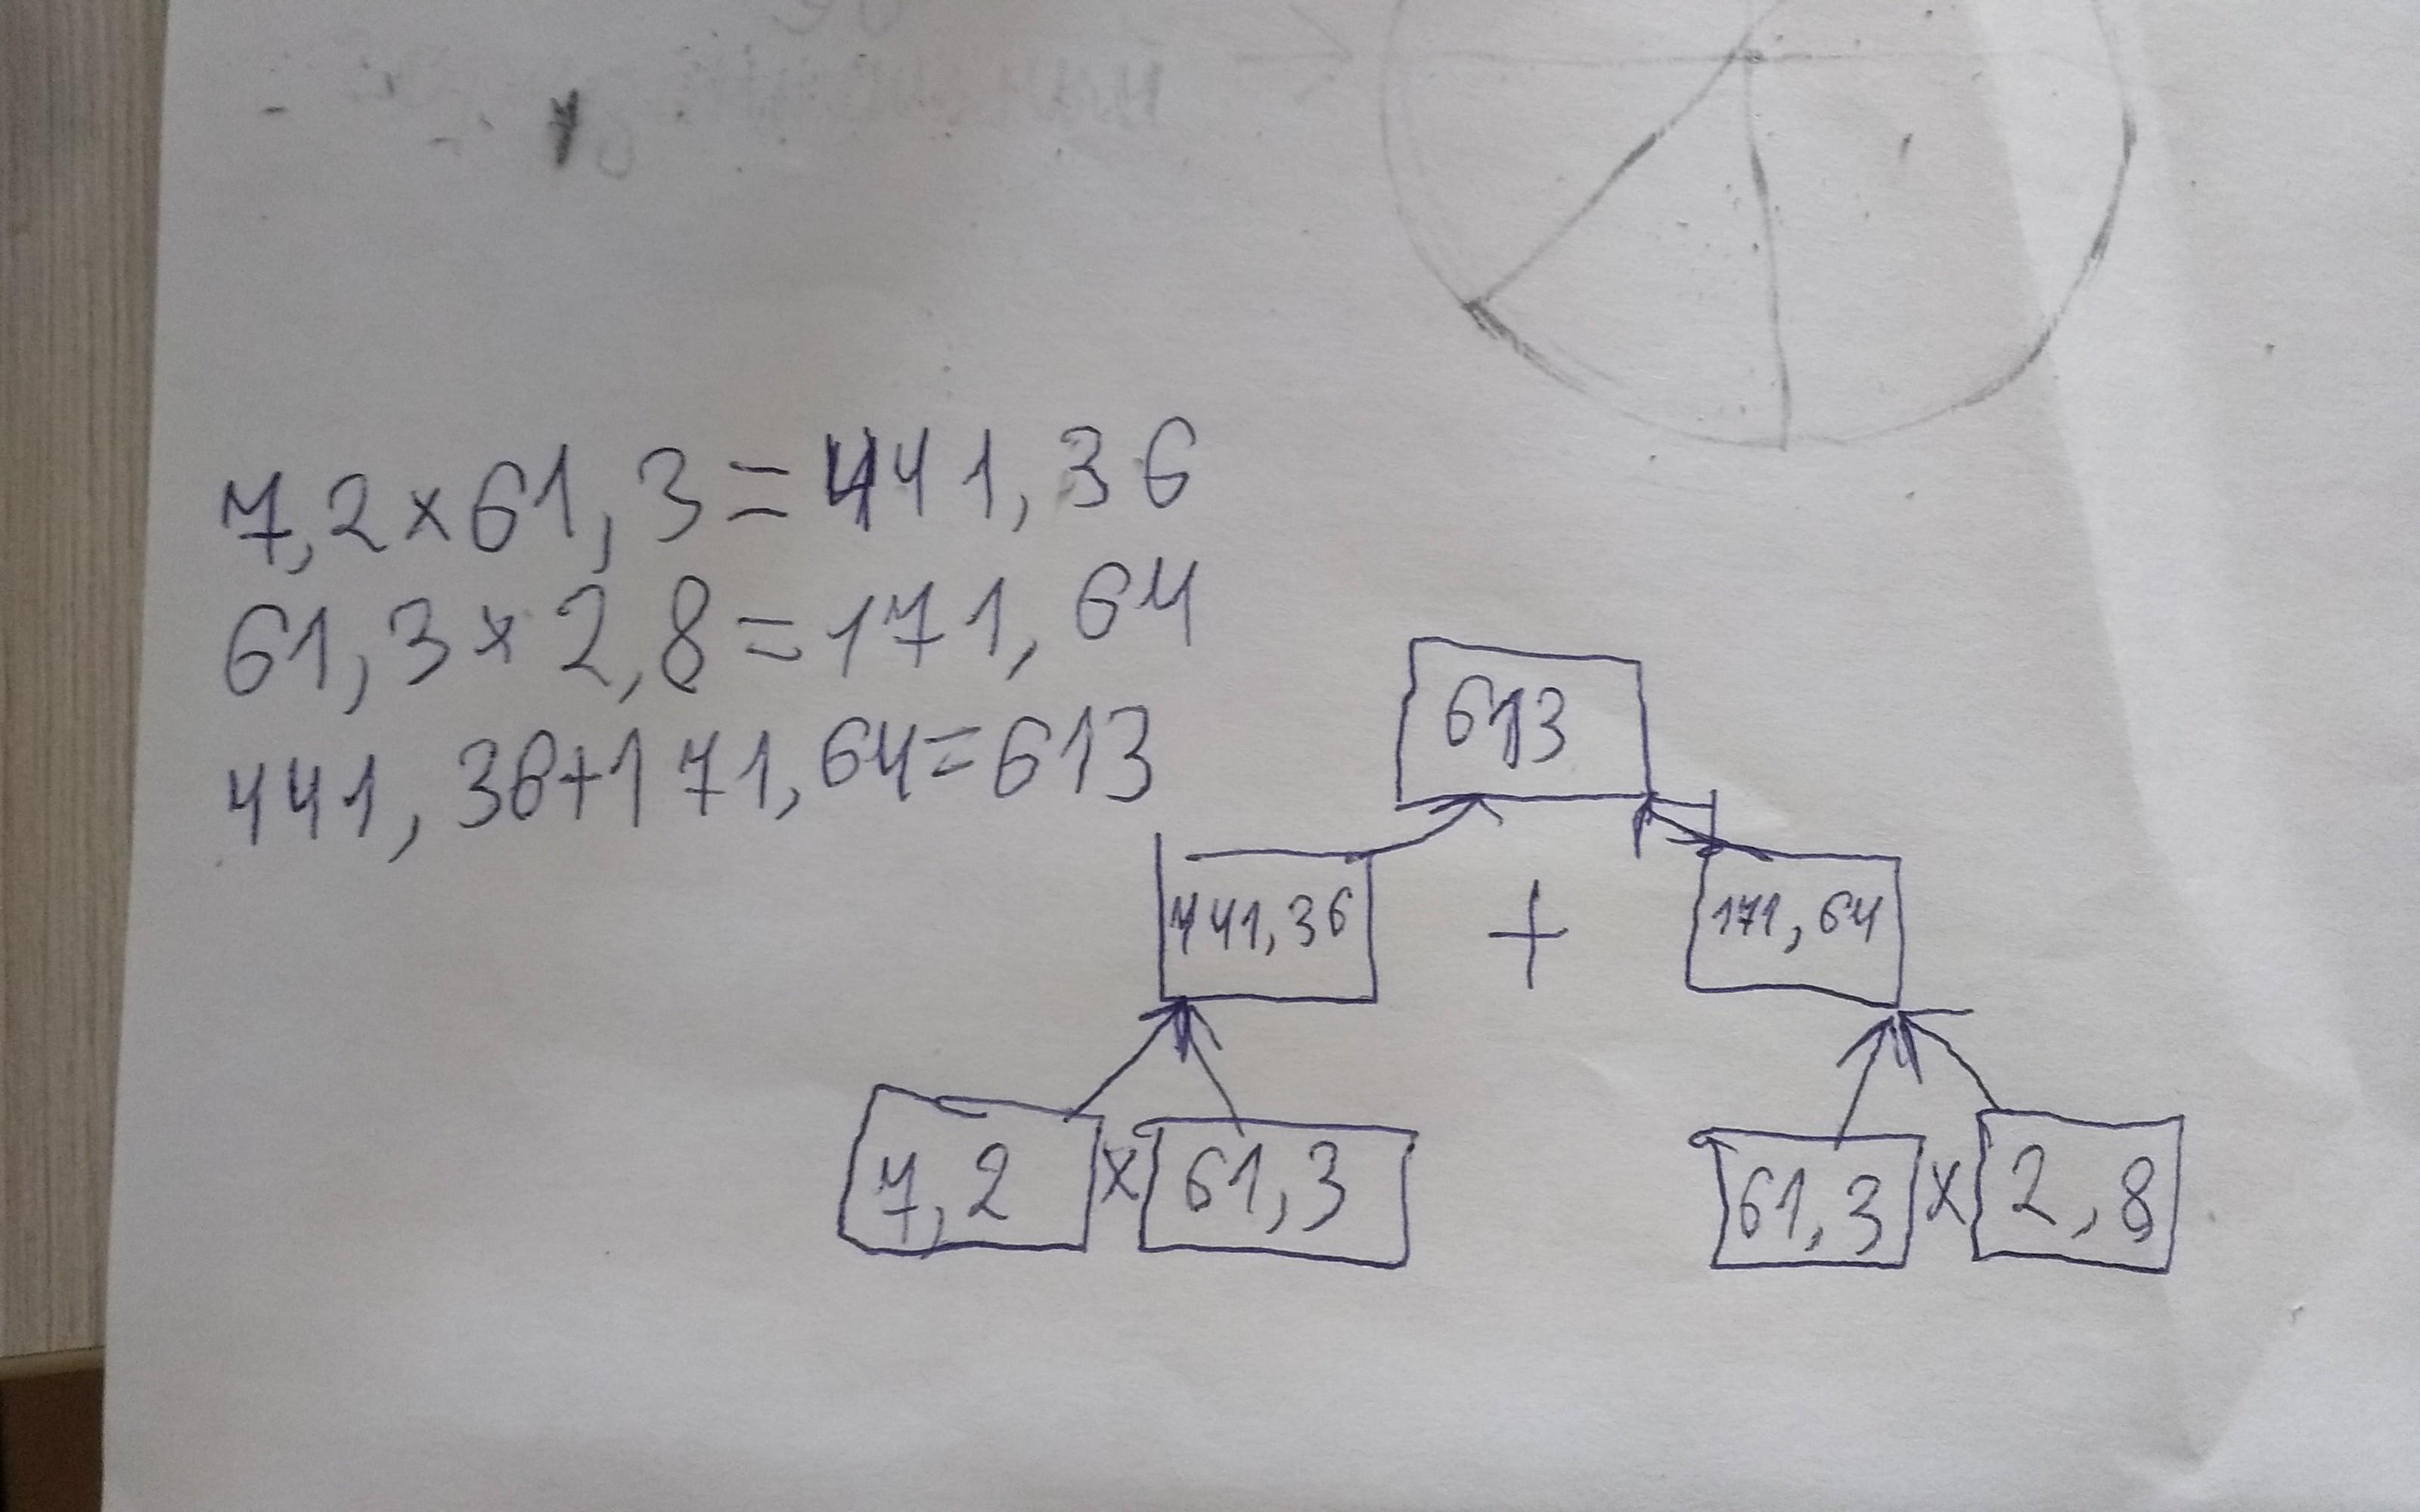 7,2×61,3=441,36
61,3×2,8=171,64
441,36+171,64=613
613
441,36 + 171,64
7,2 × 61,3 61,3 × 2,8